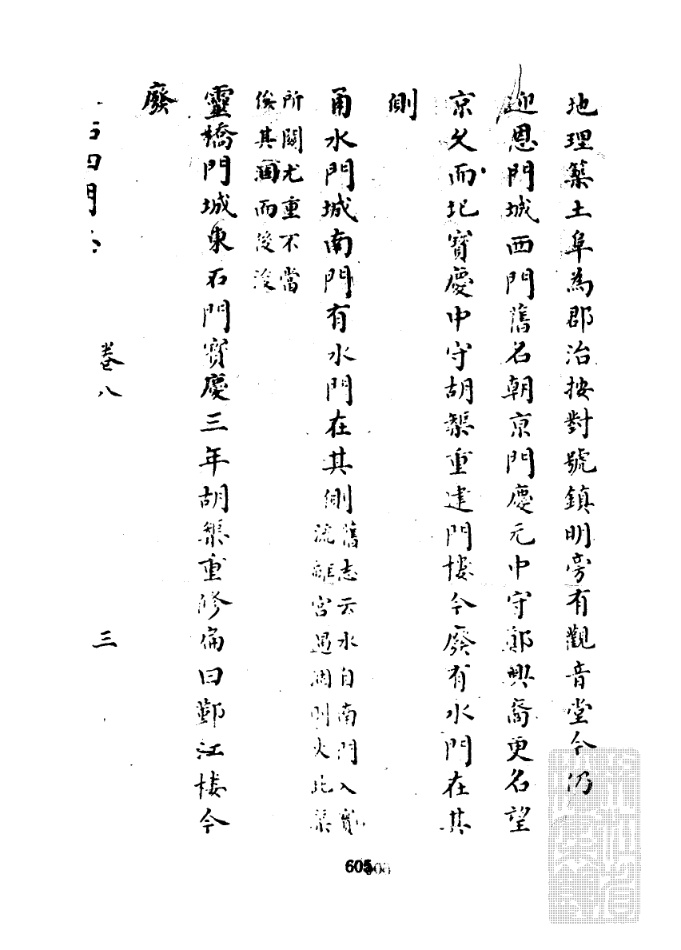 地理築土阜為郡治按對號鎮明旁有觀音堂今仍
迎恩門城西門舊名朝京門慶元中守鄭興裔更名望
京久而圯寶慶中守胡榘重建門樓今廢有水門在其
側
甬水門城南門有水門在其側舊志云水自南門入實
流離宮遇涸則火此渠
所關尤重不當
俟其涸而後浚
靈橋門城東石門寶慶三年胡榘重修扁曰鄞江樓今
廢
四門
卷八
三
605